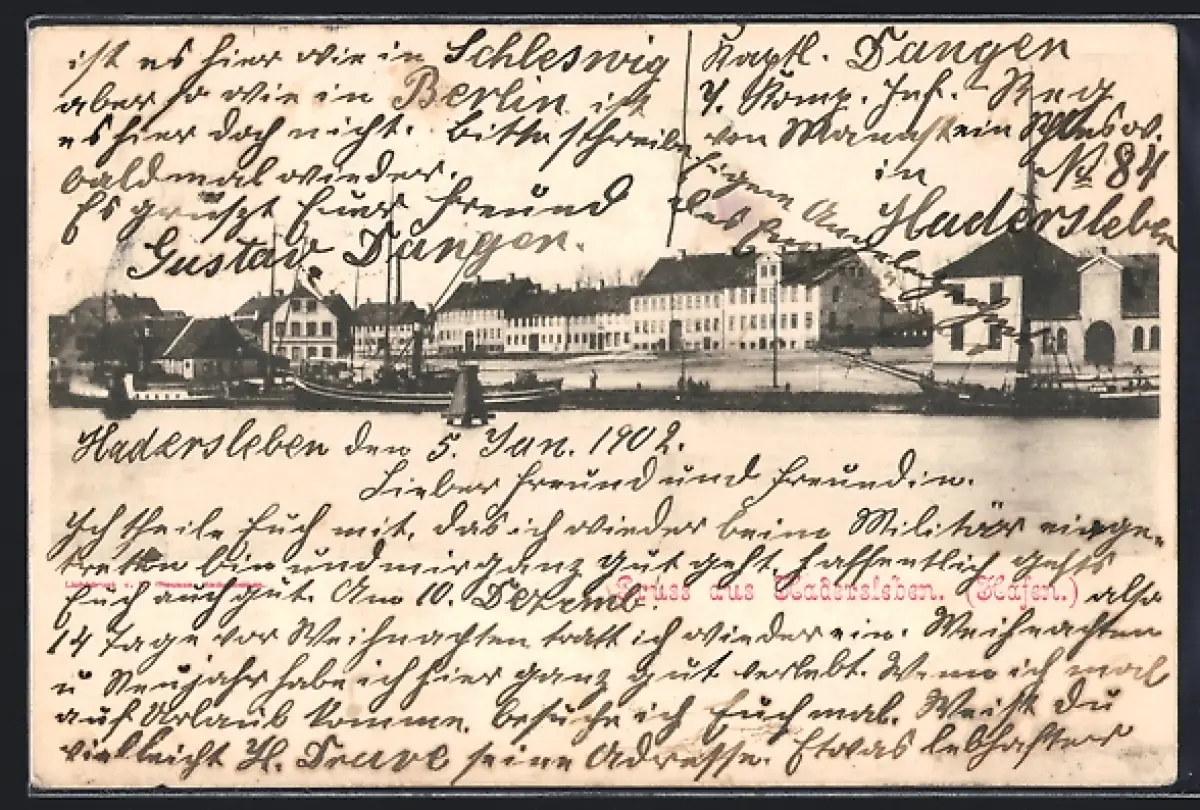 Hadersleben den 5. Jan. 1902.
Lieber Freund und Freundin.
Ich theile Euch mit, das ich wieder beim Militär einge-
tretten bin und mir ganz gut geht, hoffentlich gehts
Euch auch gut. Am 10. Dezemb. also
14 Tage vor Weihnachten tratt ich wieder ein. Weihnachten
u Neujahr habe ich hier ganz gut verlebt. Wenn ich mal
auf Urlaub komme, besuche ich Euch mal. Weißt du
vielleicht H. Trave seine Adresse. Etwas lebhafter
ist es hier wie in Schleswig
aber so wie in Berlin ist
es hier doch nicht. Bitte schreibe
bald mal wieder.
Es grüßt Euer Freund
Gustav Dangen.
Kaptl. Dangen
Komp. Inf. Reg
von Manstein Schlesw.
in No 84
Hadersleben
Gruss aus Hadersleben. (Hafen.)